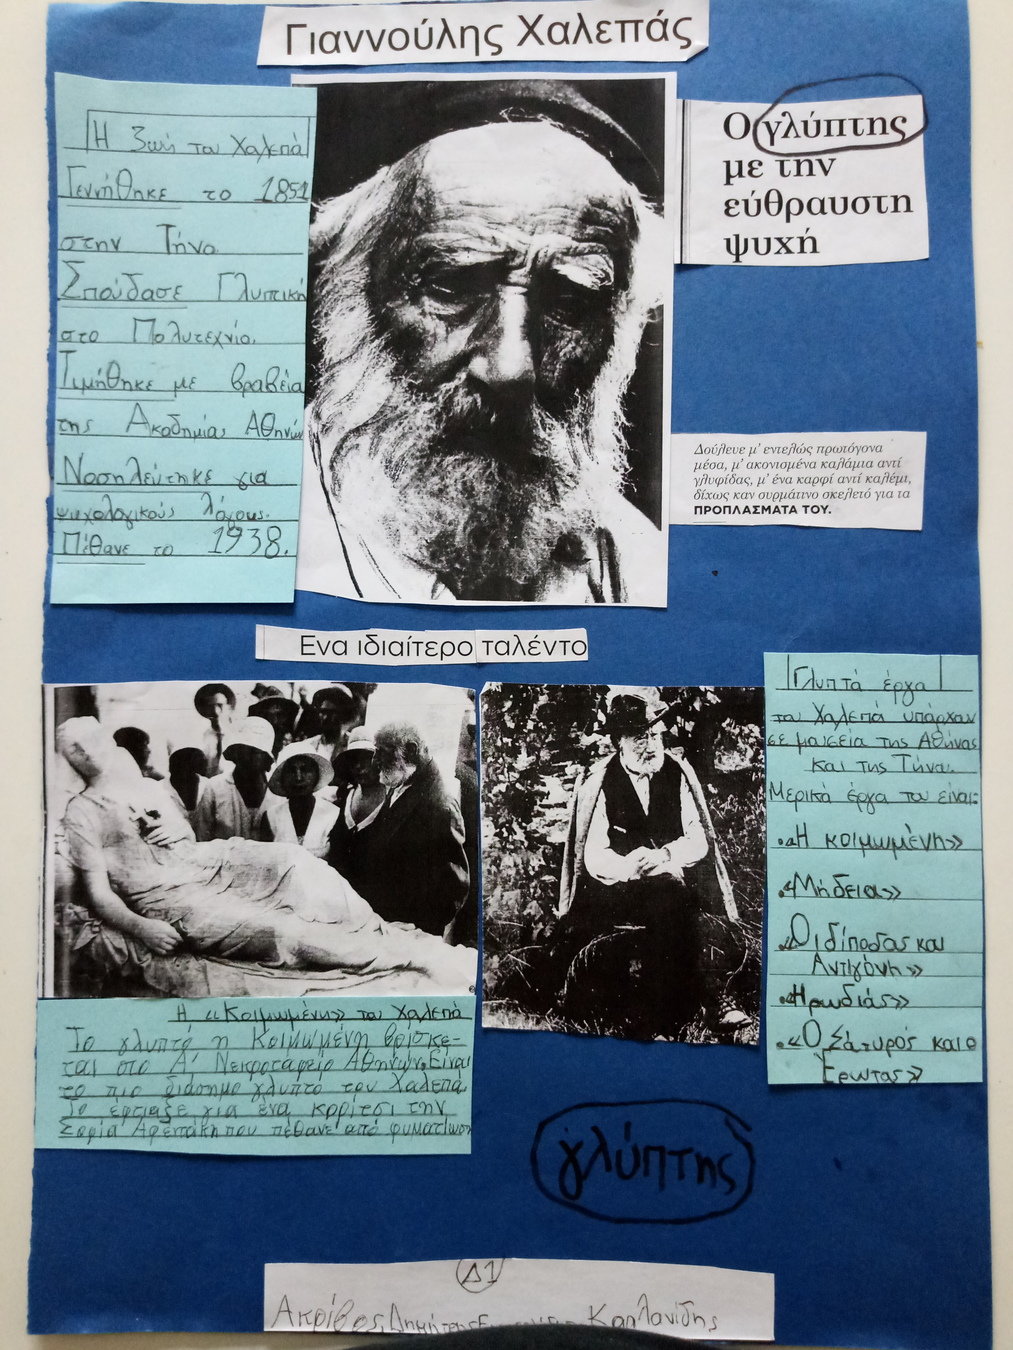 Γιαννούλης Χαλεπάς
Η ζωή του Χαλεπά
Γεννήθηκε το 1851
στην Τήνο
Σπούδασε Γλυπτική
στο Πολυτεχνίο.
Τιμήθηκε με βραβεία
της Ακαδημίας Αθηνών
Νοσηλεύτηκε για
ψυχολογικούς λόγους.
Πέθανε το 1938.
Ο γλύπτης
με την
εύθραυστη
ψυχή
Δούλευε μ' εντελώς πρωτόγονα
μέσα, μ' ακονισμένα καλάμια αντί
γλυφίδας, μ' ένα καρφί αντί καλέμι,
δίχως καν συρμάτινο σκελετό για τα
ΠΡΟΠΛΑΣΜΑΤΑ ΤΟΥ.
Ενα ιδιαίτερο ταλέντο
Γλυπτά έργα
του Χαλεπά υπάρχαν
σε μουσεία της Αθήνας
και της Τήνο.
Μερικά έργα του είναι:
• «Η κοιμωμένη»
• «Μήδεια»
• «Οιδίποδας και
Αντιγόνη»
• «Ηρωδιάς»
• «Ο Σάτυρός και ο
Έρωτας»
Η «Κοιμωμένη» του Χαλεπά
Το γλυπτό η Κοιμωμένη βρίσκε-
ται στο Α', Νεκροταφείο Αθηνών. Είναι
το πιο διάσημο γλυπτό του Χαλεπά
Το έφτιαξε για ένα κορίτσι την
Σοφία Αφεντάκη που πέθανε από φυματίωση
γλύπτης
Δ1
Ακρίβος, Δημήτρης Καπλανίδης